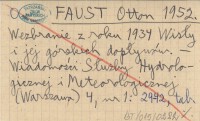 FAUST Otton 1952.
Wezbranie z roku 1934 Wisły
i jej górskich dopływów -
Wiadomości Służby Hydrolo-
gicznej i Meteorologicznej
(Warszawa) 4, nr 1: 29-42, tab.